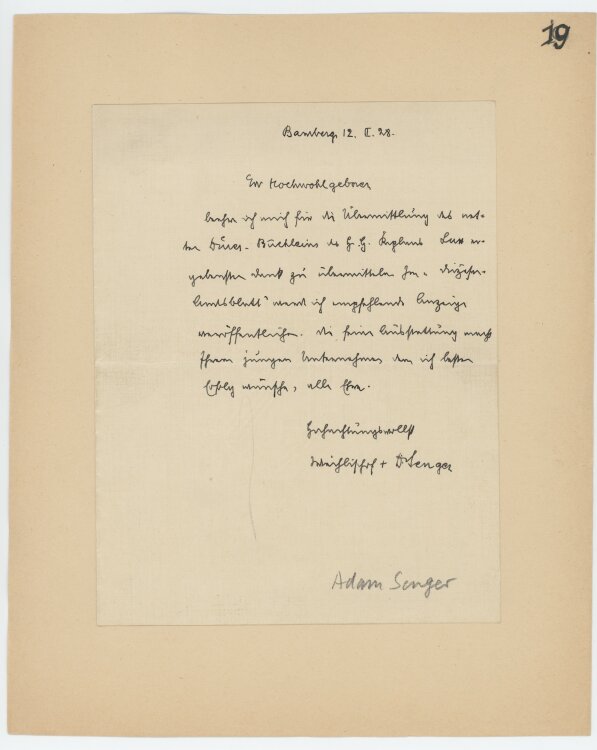 19
Bamberg, 12. II. 28.
Ew Hochwohlgeboren
beehre ich mich für die Übermittlung des net-
ten Dürer-Büchleins des H. H. Kaplans Lux er-
gebensten Dank zu übermitteln. Im „Diözesan-
Amtsblatt" werd ich empfehlende Anzeige
veröffentlichen. Die feine Ausstattung macht
Ihrem jungen Unternehmen dem ich besten
Erfolg wünsche, alle Ehre.
Hochachtungsvollst
Weihbischof + D Senger
Adam Senger